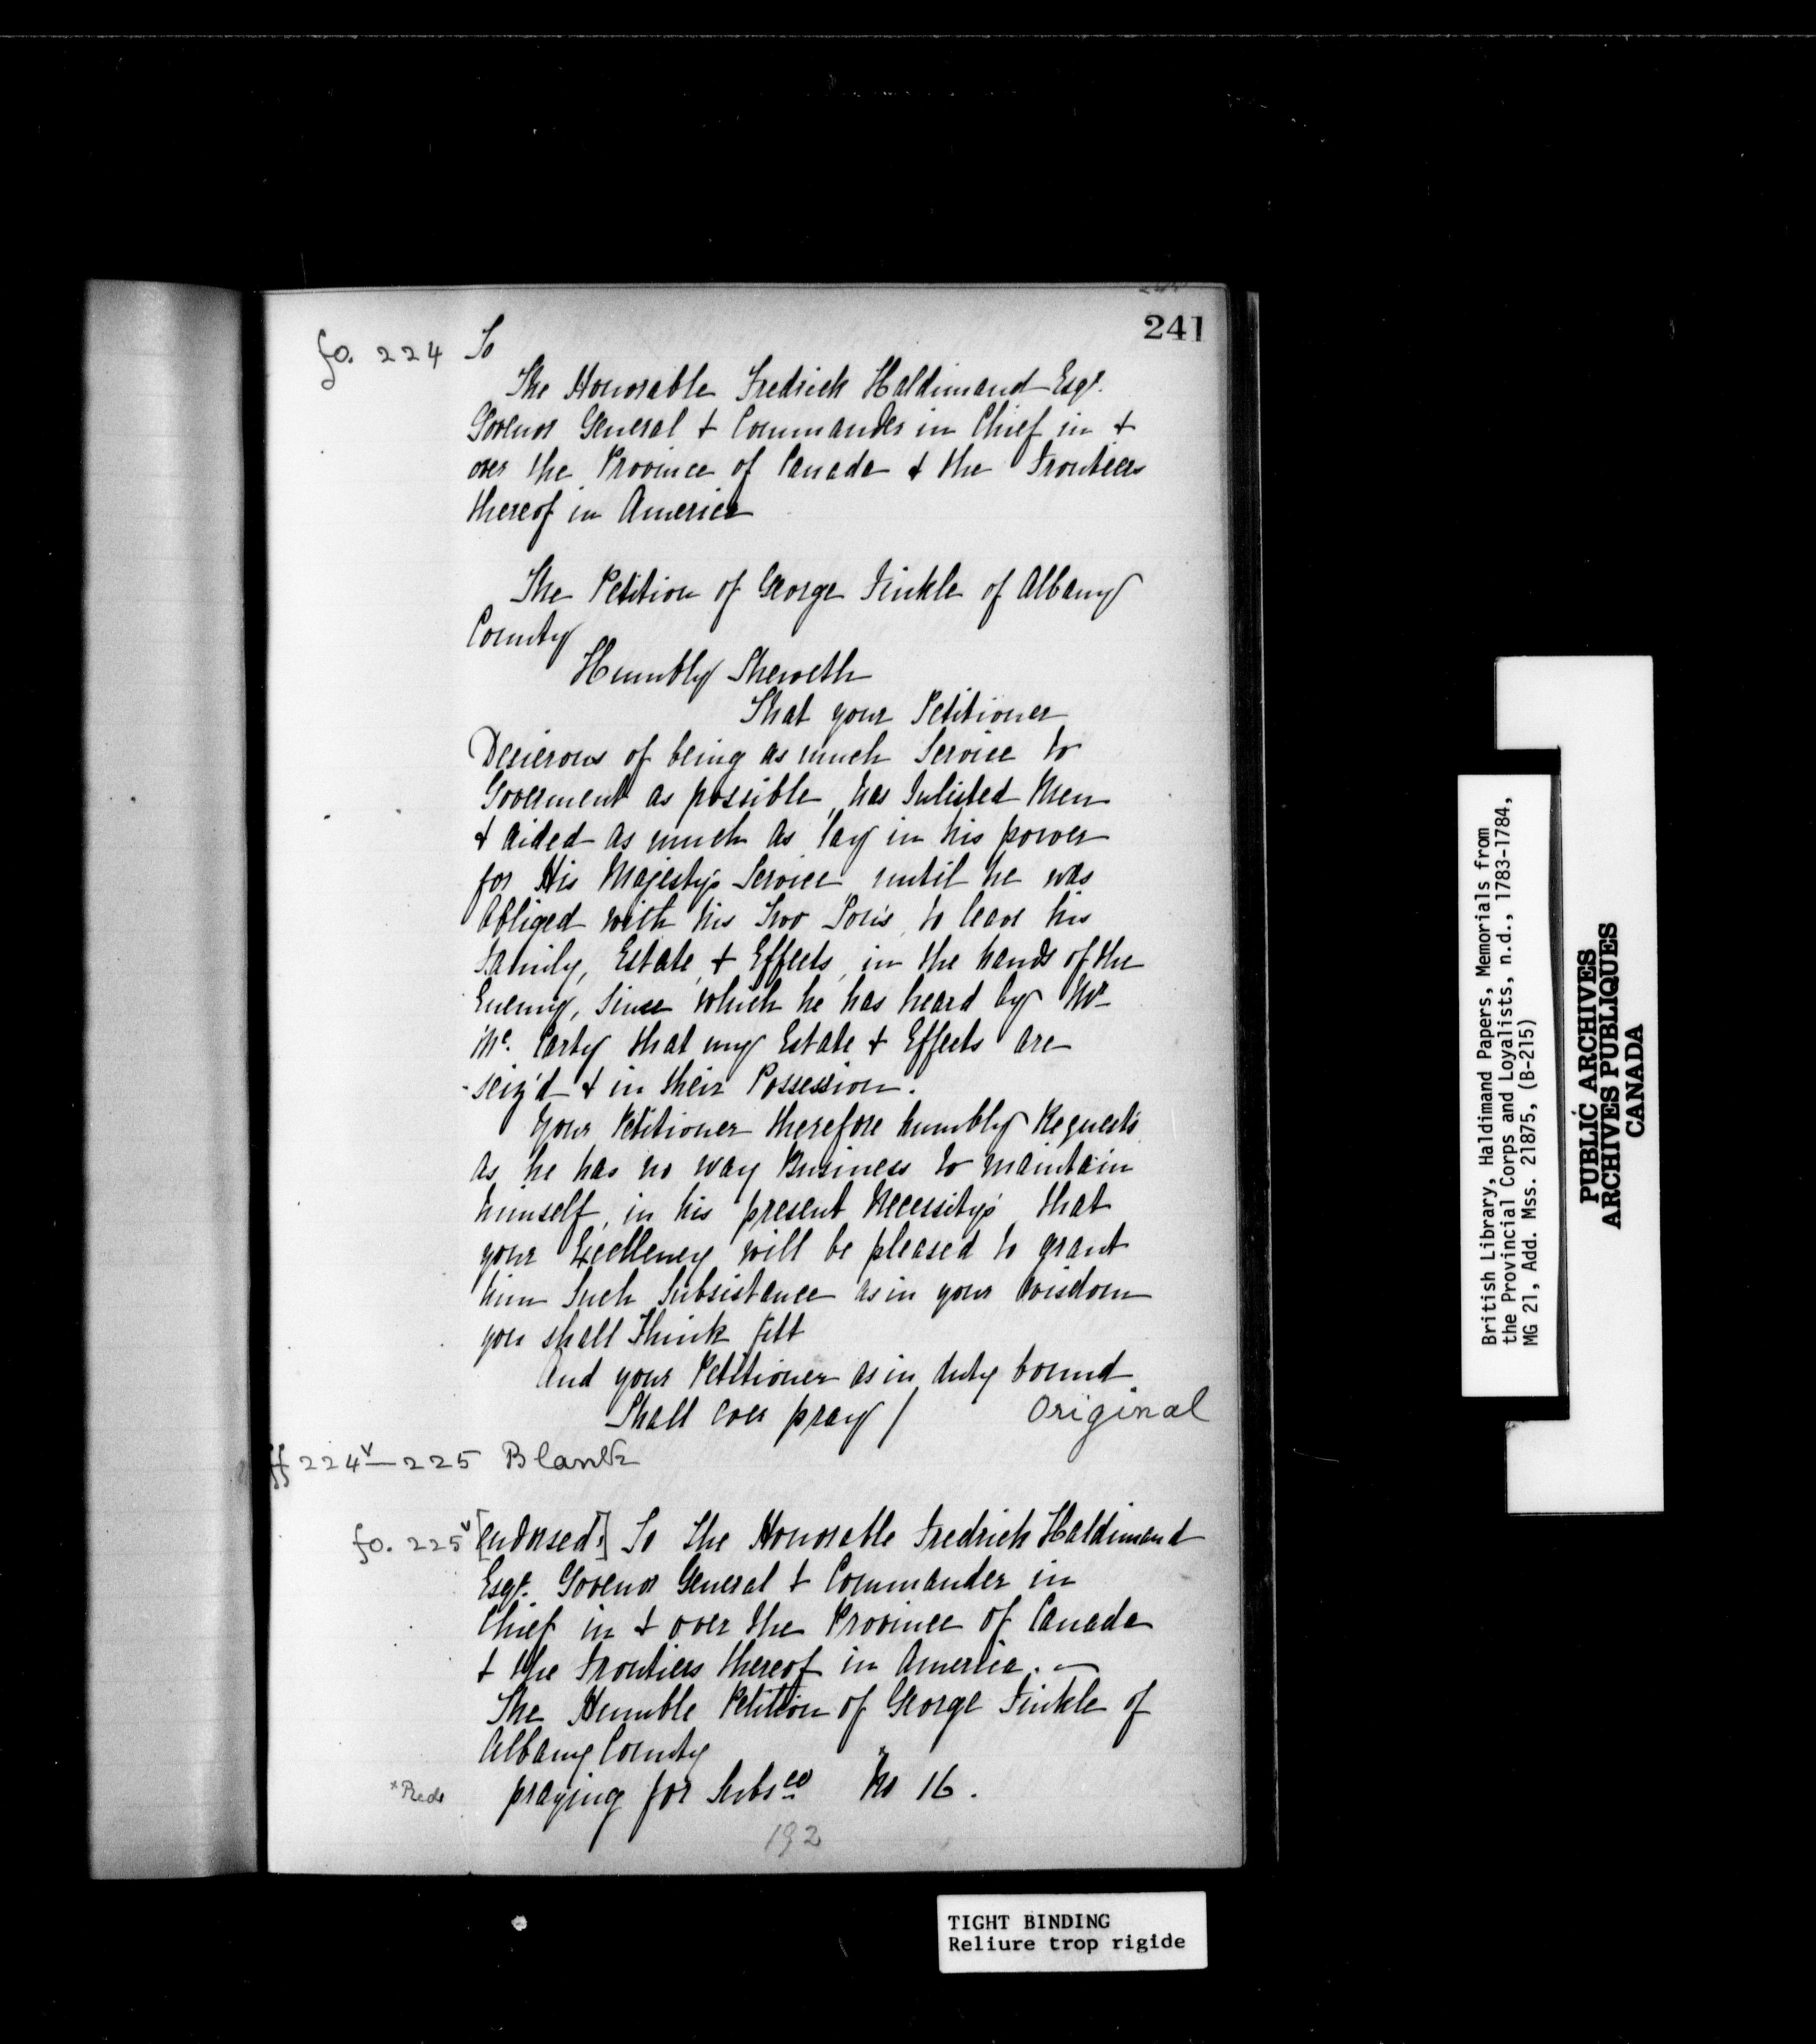 241
fo. 224 To
The Honorable Fredrick Haldimand Esqr.
Govenor General & Commander in Chief in &
over the Province of Canada & the Frontiers
thereof in America
The Petition of George Finkle of Albany
County
Humbly Sheweth
That your Petitioner
Desierous of being as much Service to
Goverment as possible, has Inlisted Men
& aided as much as lay in his power
for His Majesty's Service until he was
obliged with his Two Son's to leave his
Family, Estate & Effects, in the hands of the
Enemy, Since which he has heard by Mr
Mc. Carty that my Estate & Effects are
seiz'd & in their Possession.
Your Petitioner therefore humbly Requests
as he has no way Business to maintain
himself, in his present Necessity's that
your Excellency will be pleased to grant
him Such Subsistance as in your wisdom
you shall Think fitt
And your Petitioner as in duty bound
Shall ever pray / Original
ff 224v—225 Blank
fo. 225v [Endorsed.] To The Honorable Fredrick Haldimand
Esqr. Govenor General & Commander in
Chief in & over the Province of Canada
& the Frontiers thereof in America. —
The Humble Petition of George Finkle of
Albany County
praying for Subsce x No 16.
192
TIGHT BINDING
Reliure trop rigide
British Library, Haldimand Papers, Memorials from
the Provincial Corps and Loyalists, n.d., 1783-1784,
MG 21, Add. Mss. 21875, (B-215)
PUBLIC ARCHIVES
ARCHIVES PUBLIQUES
CANADA